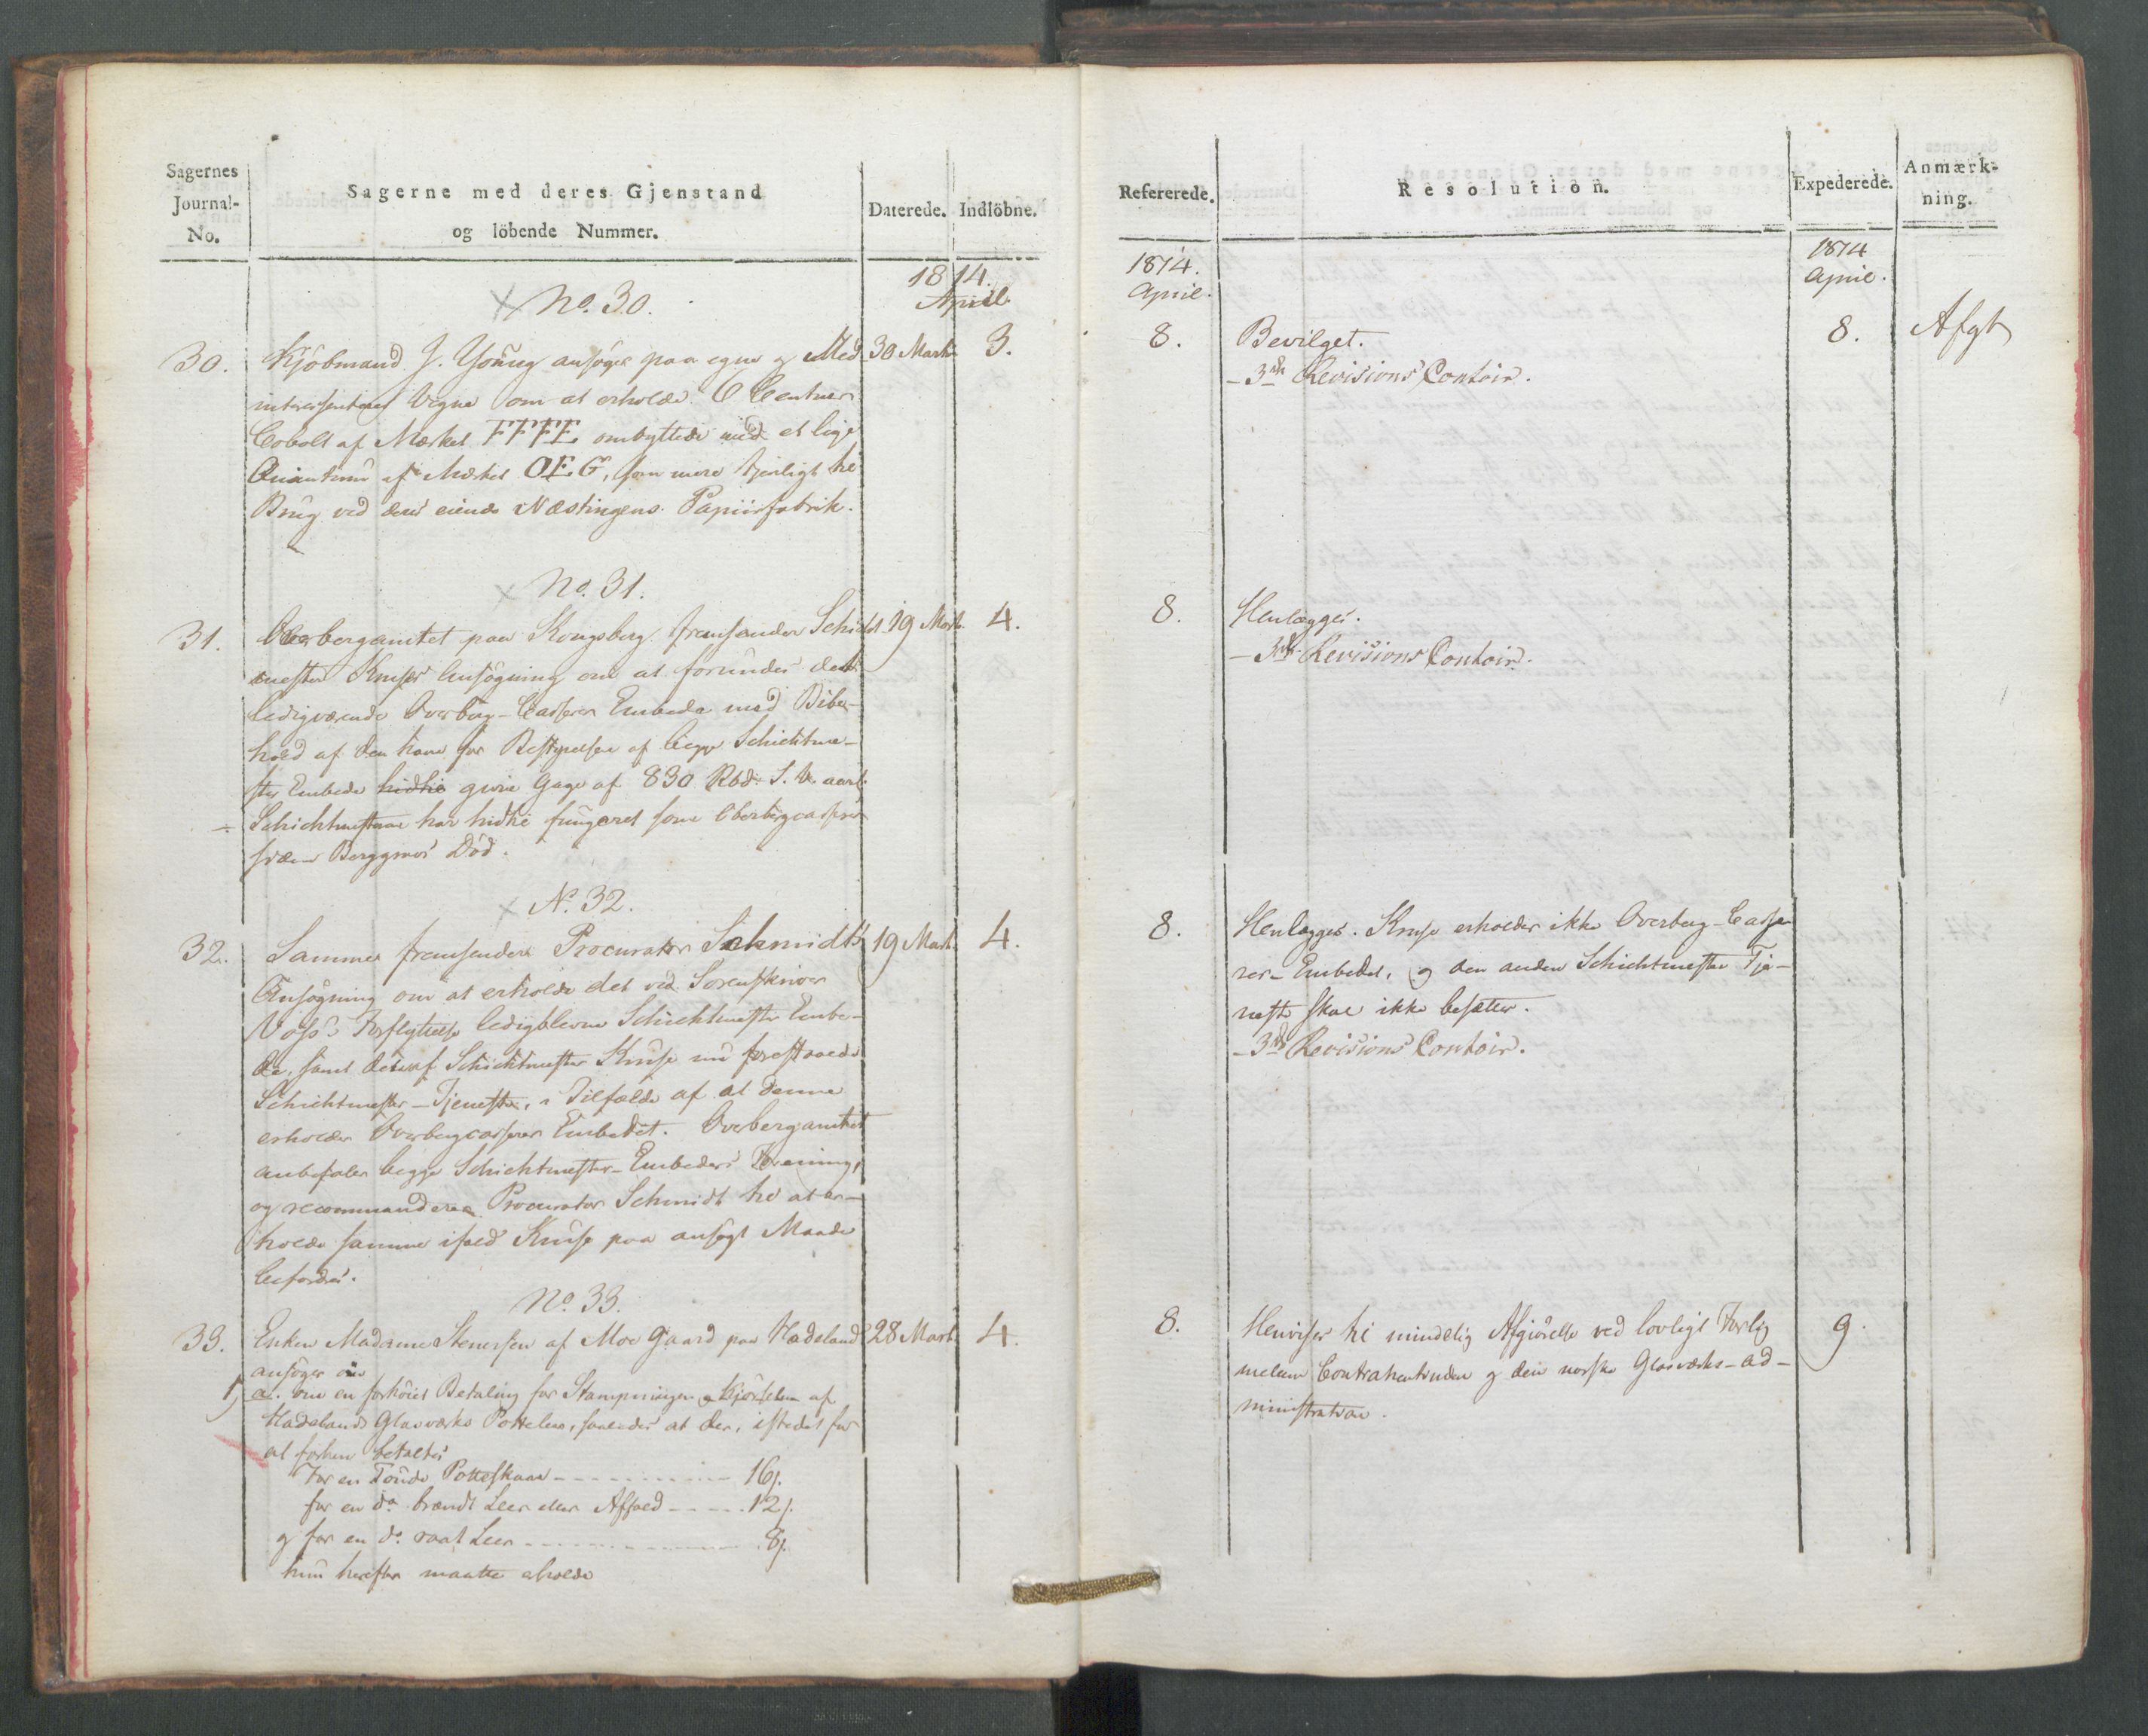 Sagernes
Journal-
No.
Sagerne med deres Gjenstand
og löbende Nummer.
Daterede.
Indlöbne.
1814.
April.
No. 30.
30.
Kjöbmand J. Young ansöger paa egne og Med
30 Marts
3.
interessenters Vegne om at erholde 6 Centner
Cobolt af Mærket FFFE ombyttede med et lige
Quantum af Mærket OEG, som mere tjenligt til
Brug ved deres eiende Næstingens Papiirfabrik.
No. 31.
31.
Overbergamtet paa Kongsberg fremsender Schicht
19 Marts
4.
mester Kruses Ansögning om at forundes det
ledigværende Overberg-Casserer Embede med Bibe-
hold af den ham for Bestyrelsen af begge Schichtme-
ster Embeder hidtil givne Gage af 830 Rbd. S. V. aarl.
Schichtmesteren har hidtil fungeret som Oberbergcasserer
siden Berggrens Död.
No. 32.
32.
Samme fremsender Procurator Schmidts
19 Marts
4.
Ansögning om at erholde det ved Sorenskriver
Voss's Forflyttelse ledigblevne Schichtmester Embe-
de, samt det af Schichtmester Kruse nu forestaaede
Schichtmester-Tjeneste, i Tilfælde af at denne
erholder Overbergcasserer Embedet. Overbergamtet
anbefaler begge Schichtmester-Embeders Forening,
og recommanderer Procurator Schmidt til at er-
holde samme ifald Kruse paa ansögt Maade
befordres.
No. 33.
33.
Enken Madame Stenersen af Moe Gaard paa Hadeland
28 Marts
4.
ansöger om
1)
a. om en forhöiet Betaling for Stampningen og Kjörselen af
Hadelands Glasværks Potteleer, saaledes at der, istedet for
at forhen betaltes
For en Tönde Potteskaar - - - - - 16 s.
for en do brændt Leer eller Affald - - - 12 s.
og for en do raat Leer - - - - - 8 s.
hun herefter maatte erholde
Refererede.
Resolution.
Expederede.
Anmærk-
ning.
1814.
April.
1814
April.
8.
Bevilget.
8.
Afgt
- 3die Revisions Contoir.
8.
Henlægges.
- 3die Revisions Contoir.
8.
Henlægges. Kruse erholder ikke Overberg-Casse
rer-Embedet, og den anden Schichtmester Tje-
neste skal ikke besættes.
- 3die Revisions Contoir.
8.
Henvises til mindelig Afgiörelse ved lovligt Forlig
9.
mellem Contrahentinden og den norske Glasværks-Ad-
ministration.